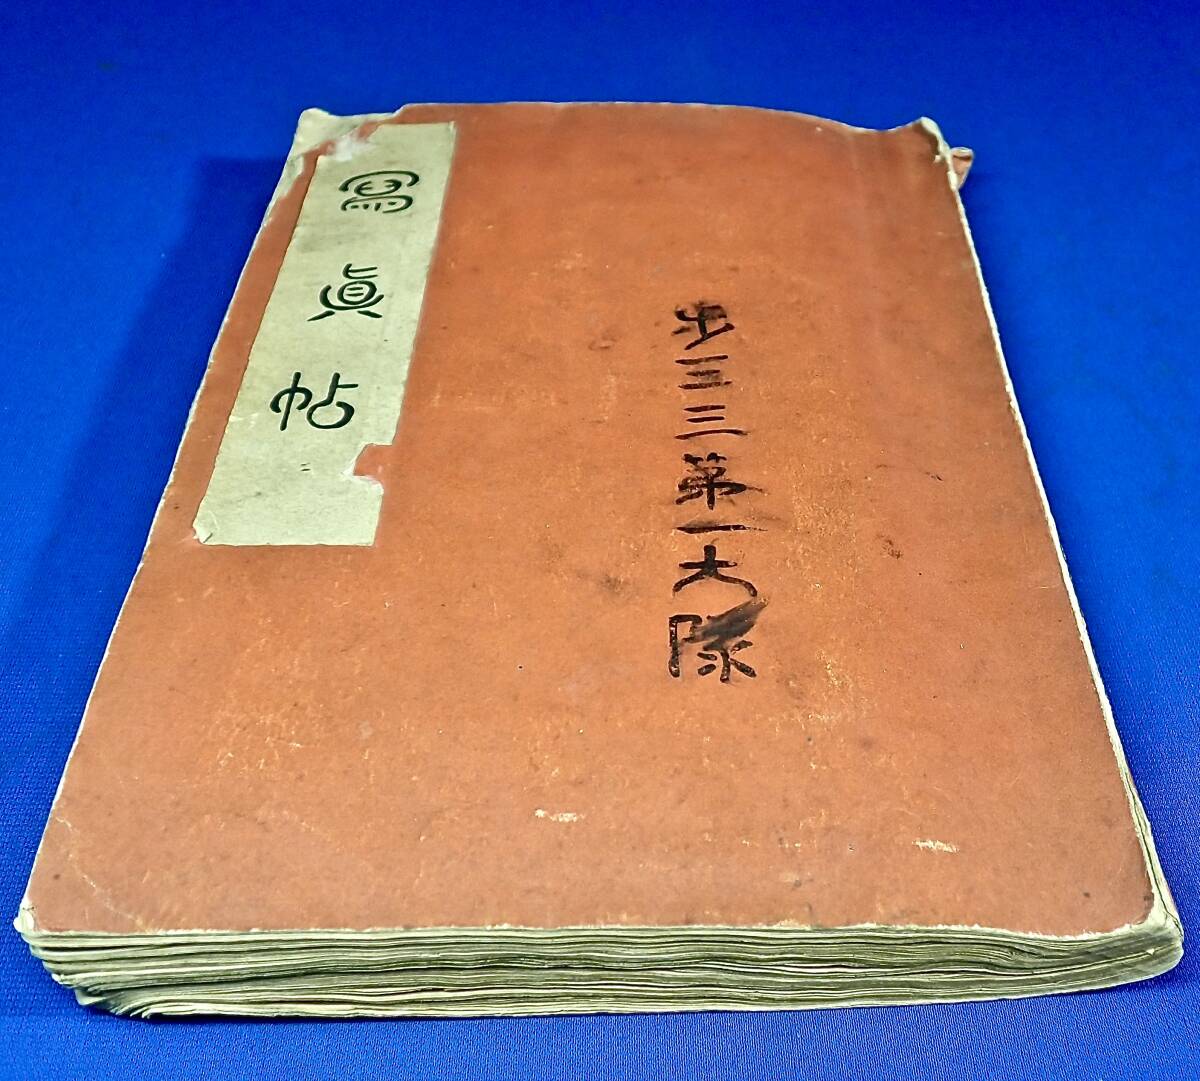 冩眞帖
歩三三第一大隊